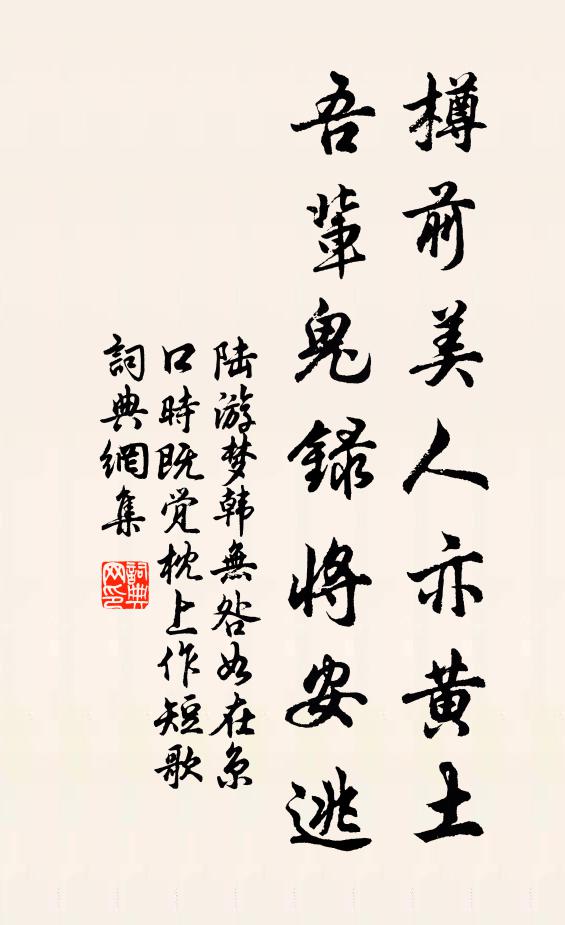 樽前美人亦黄土
吾輩鬼録將安逃
陆游梦韩無咎如在京
口時既觉枕上作短歌
詞典網集
詞典
网印